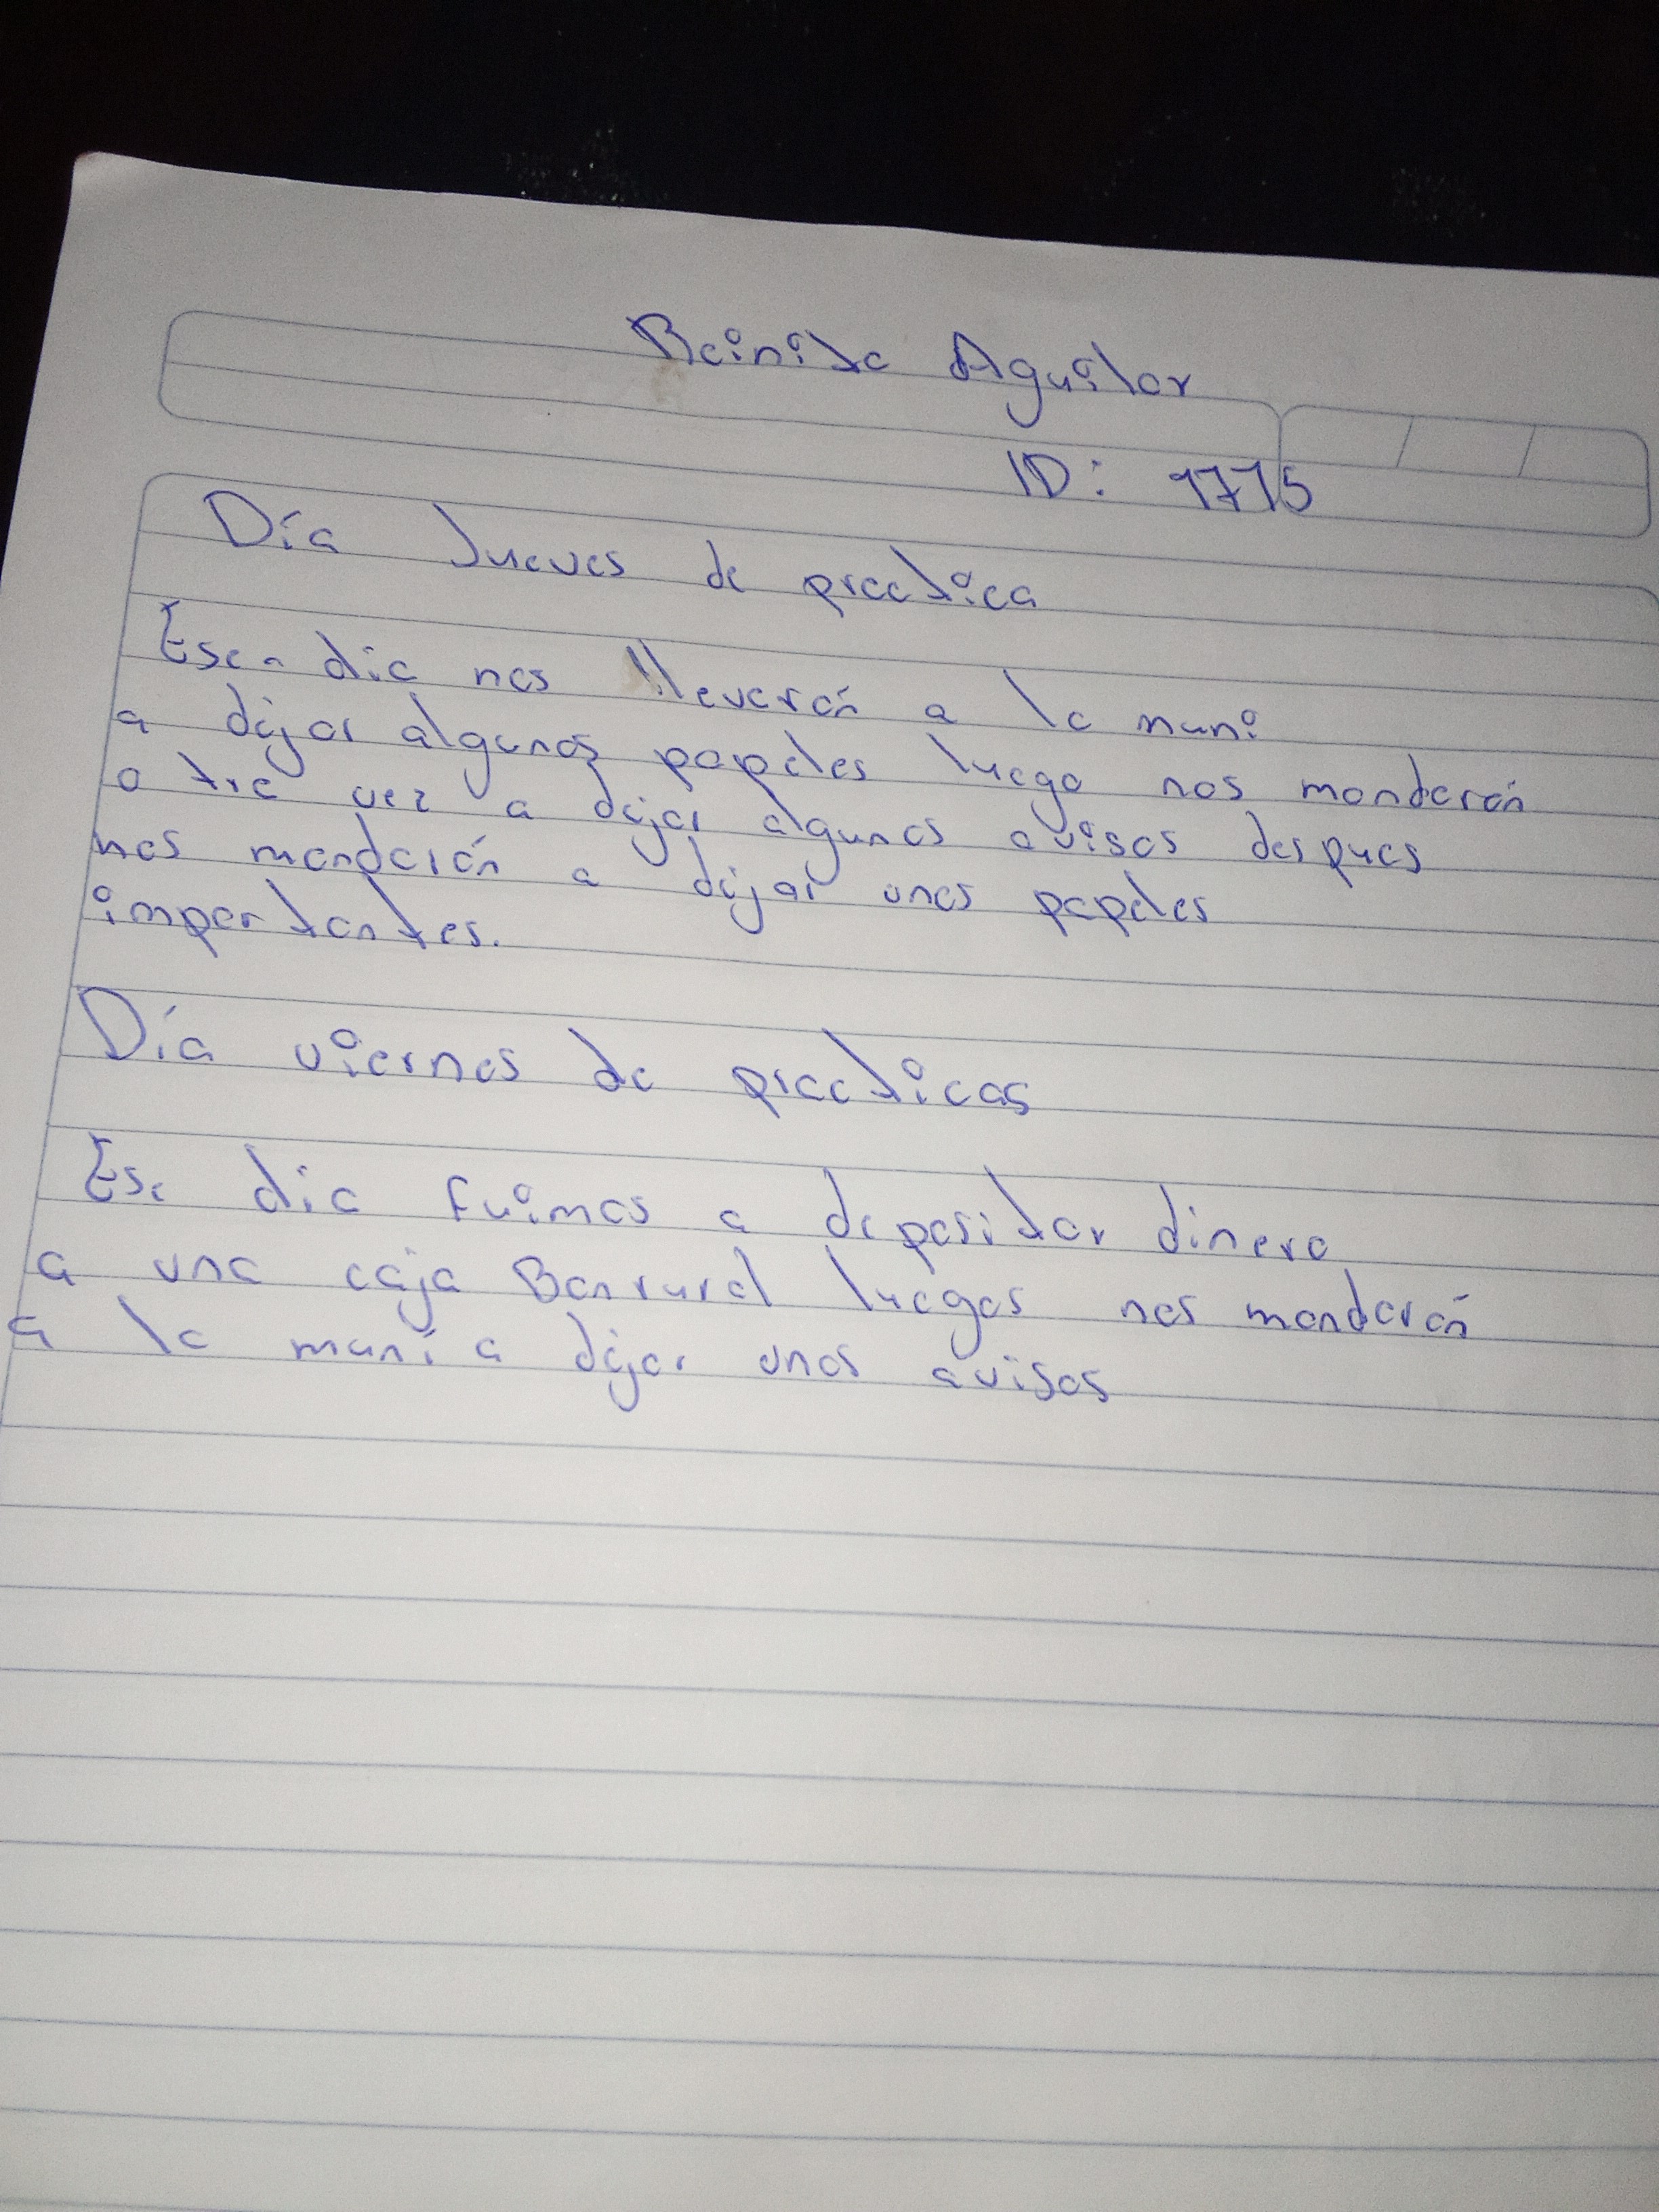 Beinita Aguilar
ID: 1775
Día Jueves de practica
Ese dia nos llevarón a la muni
a dejar algunos papeles luego nos mandarón
otra vez a dejar algunos avisos despues
nos mandarón a dejar unos papeles
importantes.
Día viernes de practicas
Ese dia fuimos a depositar dinero
a una caja Banrural luegos nos mandarón
a la muni a dejar unos avisos